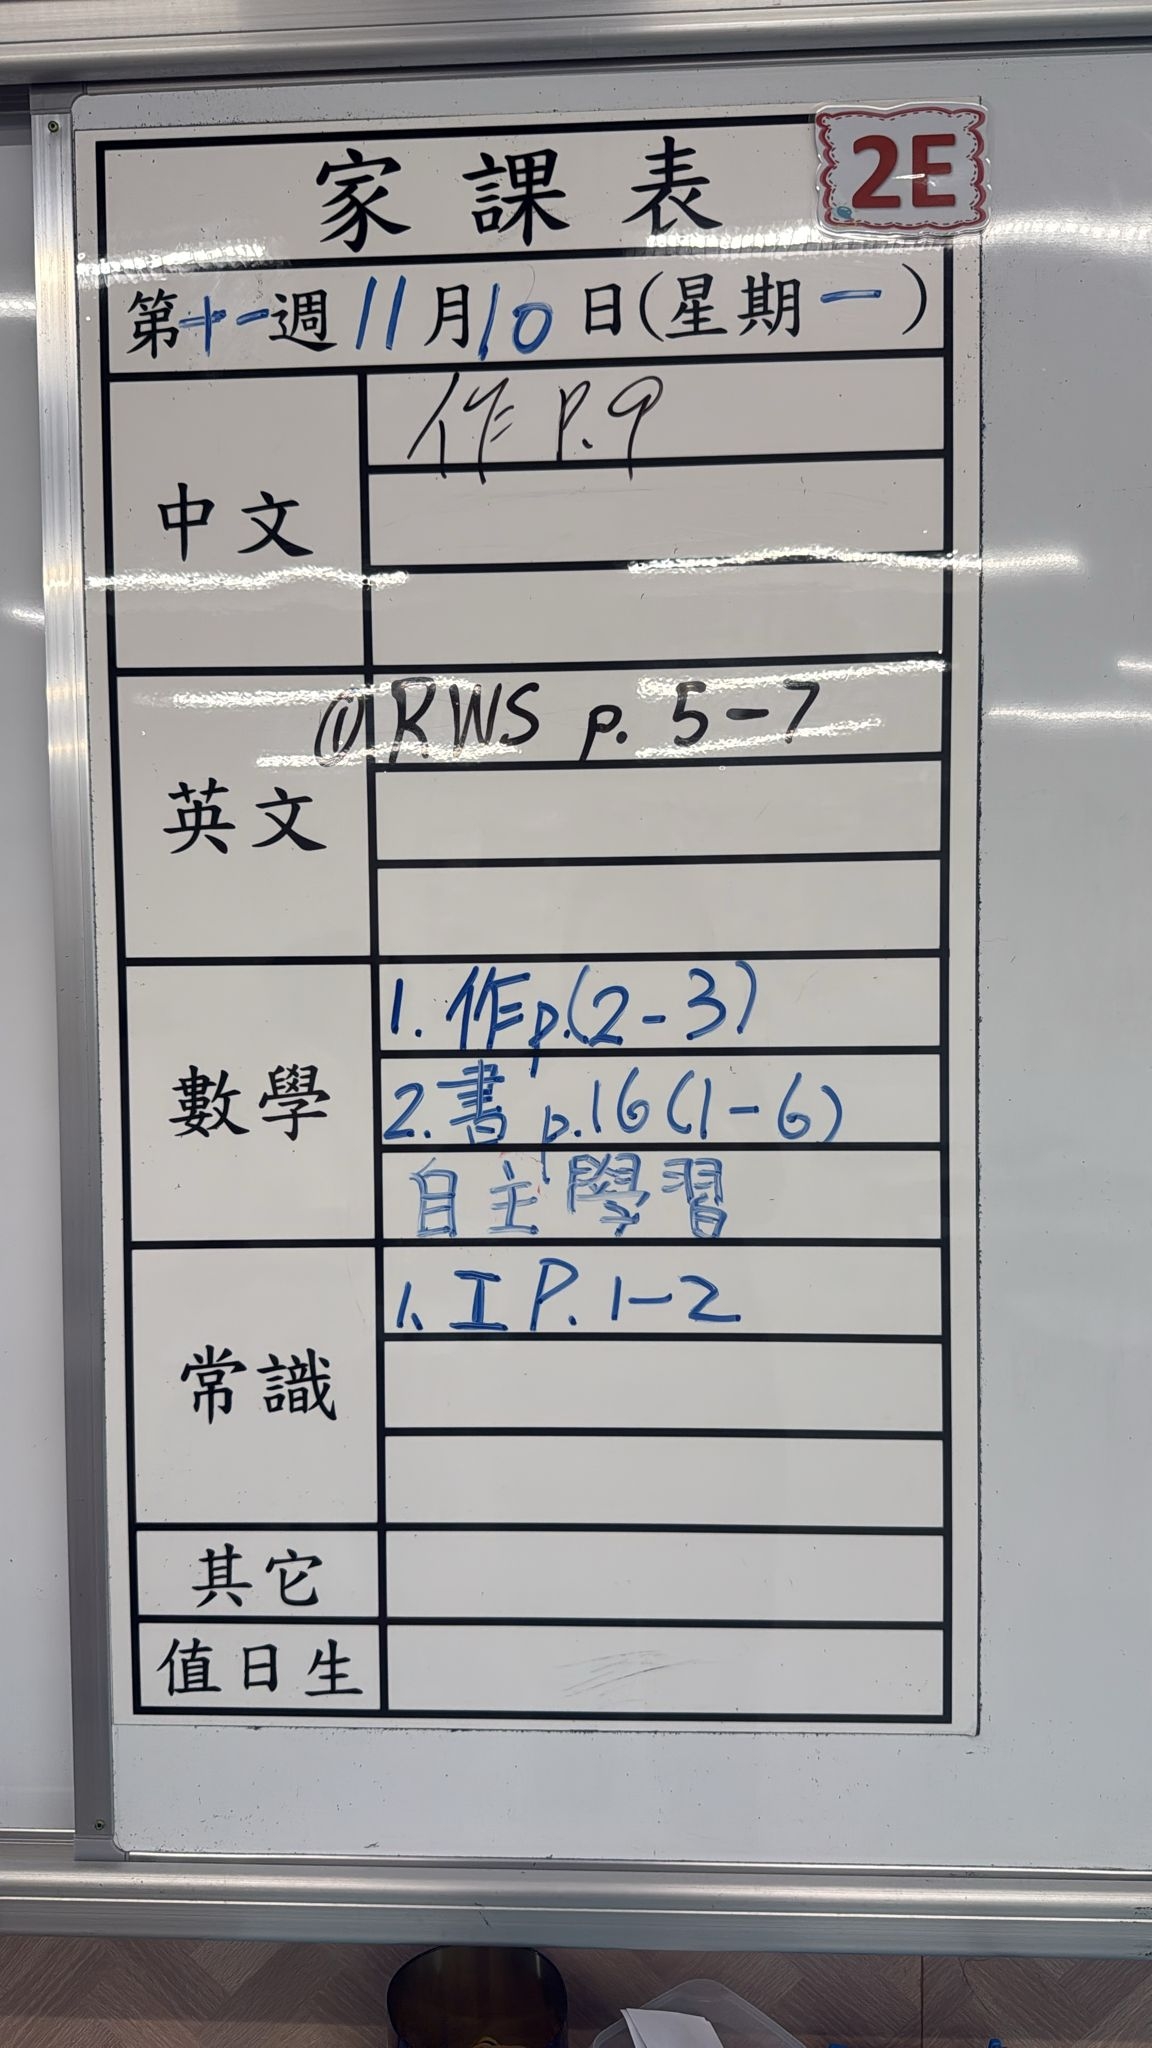 家課表 2E
第十一週11月10日(星期一)
中文
作 P.9
英文
① RWS p. 5-7
數學
1. 作p.(2-3)
2. 書 p.16(1-6)
自主學習
常識
1. 工 P. 1-2
其它
值日生